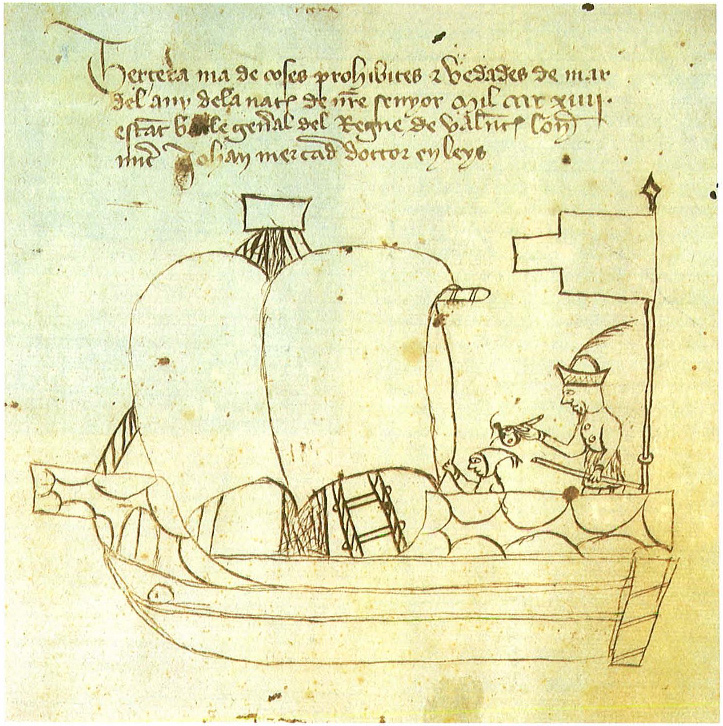 Tercera ma de coses prohibites ⁊ vedades de mar
del any dela natꝭ de nr̃e senyor Mil cccc xiiii.
estat batle geñal del Regne de valñꝭ lon
micer Johan mercad doctor en leys